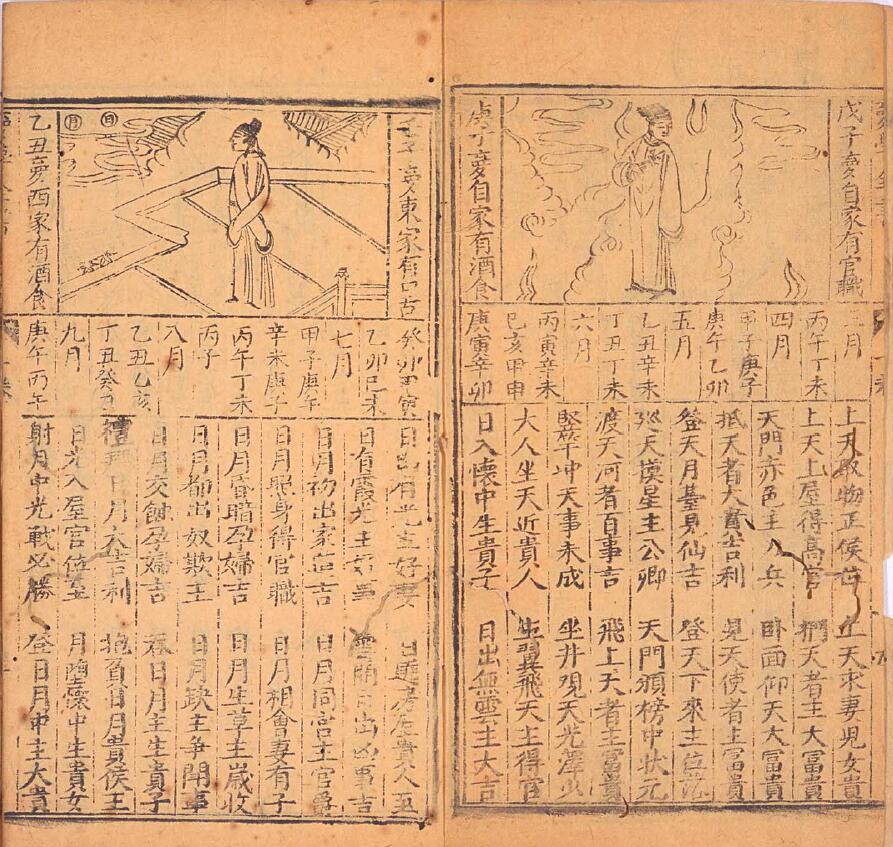 戊子夢自家有官職
庚子夢自家有酒食
三月
丙午丁未
四月
甲子庚子
庚午乙卯
五月
乙丑辛未
丁丑丁未
六月
丙寅辛未
己亥甲申
庚寅辛卯
上天取物正侯位
上天上屋得高官
天門赤色主 兵
抵天者大貴吉利
登天月臺見仙吉
天摸星主公卿
渡天河者百事吉
豎 冲天事未成
大人坐天近貴人
日入懷中生貴子
上天求妻兒女貴
天者主大富貴
卧面仰天大富貴
見天使者主富貴
登天下來主位
天門頒榜中狀元
飛上天者主富貴
坐井觀天光澤少
生翼飛天主得官
日出無雲主大吉
子夢東家有口舌
乙丑夢西家有酒食
日
月
癸卯 寅
乙卯己未
七月
甲子庚午
辛未庚子
丙午丁未
丙子
八月
乙丑乙亥
丁丑癸
九月
庚午丙午
日出有光主好妻
日有霞光主好事
日月初出家 吉
日月照身得官職
日月昏暗孕婦吉
日月都出奴欺主
日月交蝕孕婦吉
禮拜日月大吉利
日光入屋官位至
射月中光戰必勝
日 貴人至
雲開日出凶事吉
日月同宫主官爵
日月相會妻有子
日月生草主歲收
日月缺主爭鬧事
吞日月主生貴子
抱負日月貴侯王
月墮懷中生貴女
登日月中主大貴